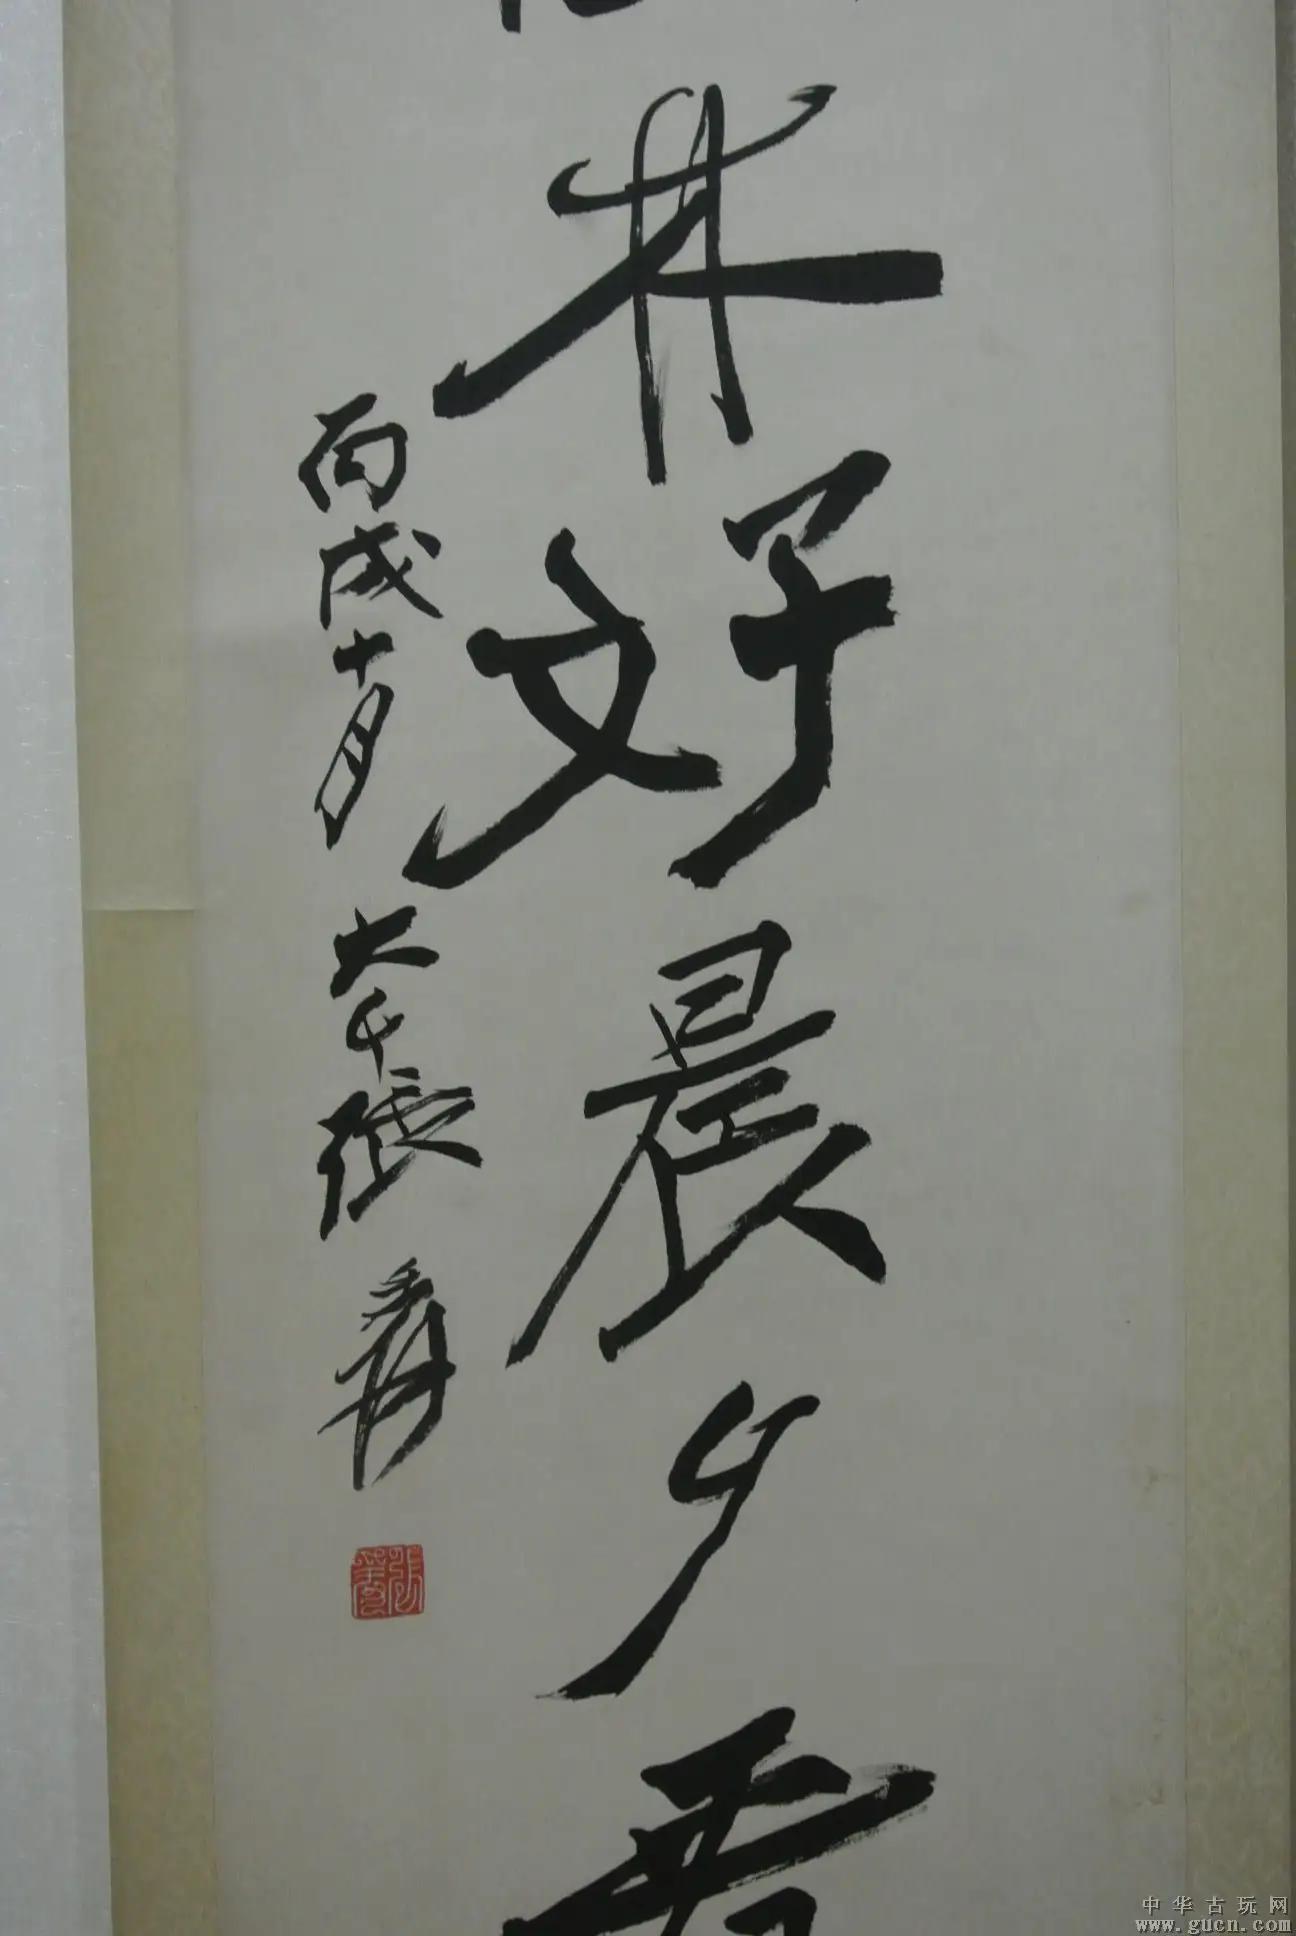 林好晨夕
丙戌十月 大千張爰
張爰
中华古玩网
www.gucn.com